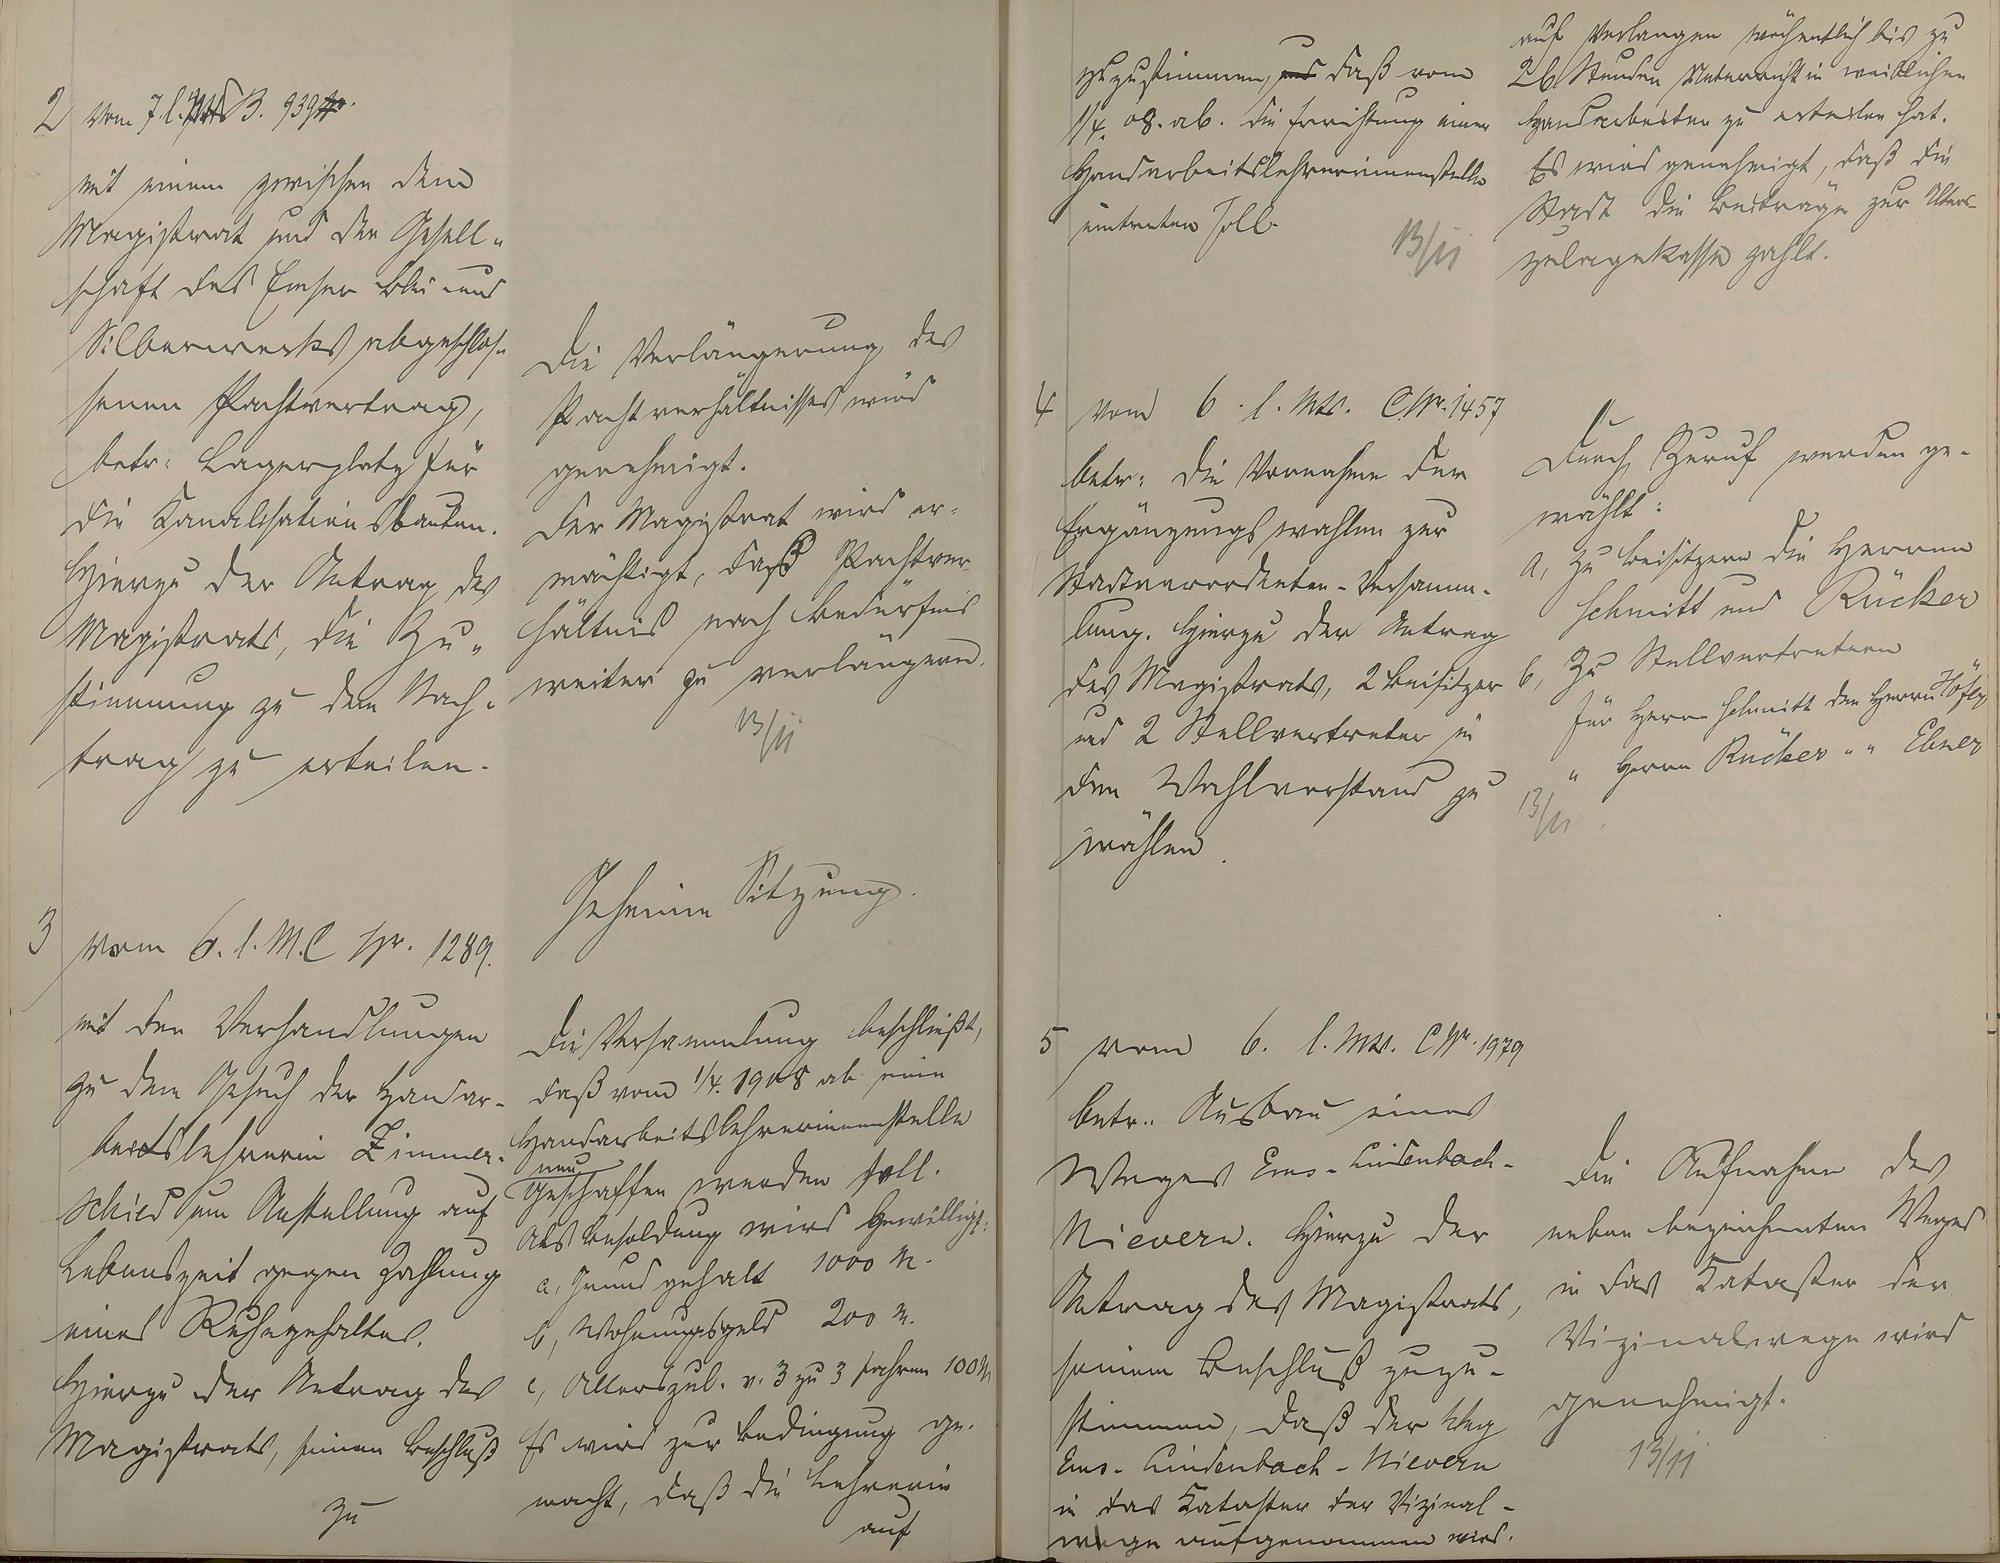 2 vom 7. l. Mts B. 939
mit einem zwischen dem
Magistrat und der Gesell-
schaft des Emser Blei und
Silberwerks abgeschlos-
senen Pachtvertrag,
betr: Lagerplatz für
die Kanalisationsbauten.
Hierzu der Antrag des
Magistrats, die Zu-
stimmung zu dem Nach-
trag zu erteilen.
Die Verlängerung des
Pachtverhältnisses wird
genehmigt.
Der Magistrat wird er-
mächtigt, das Pachtver-
hältnis nach Bedürfnis
weiter zu verlängern.
13/11
Geheime Sitzung.
3 vom 6. l. M. C Nr. 1289.
mit den Verhandlungen
zu dem Gesuch der Handar-
beitslehrerin Zimmer-
schied um Anstellung auf
Lebenszeit gegen Zahlung
eines Ruhegehaltes.
Hierzu der Antrag des
Magistrats, seinem Beschluß
zu
Die Versammlung beschließt,
daß vom 1/4. 1908 ab eine
Handarbeitslehrerinnenstelle
neu
geschaffen werden soll.
Als Besoldung wird bewilligt:
a, Grundgehalt 1000 M.
b, Wohnungsgeld 200 M.
c, Alterszul. v. 3 zu 3 Jahren 100 M
Es wird zur Bedingung ge-
macht, daß die Lehrerin
auf
zuzustimmen, daß vom
1/4. 08. ab. die Errichtung einer
Handarbeitslehrerinnenstelle
eintreten soll.
13/11
auf Verlangen wöchentlich bis zu
26 Stunden Unterricht in weiblichen
Handarbeiten zu erteilen hat.
Es wird genehmigt, daß die
Stadt die Beiträge zur Alters-
zulagekasse zahlt.
4 vom 6. l. Mts. C Nr. 1457
betr: die Vornahme der
Ergänzungswahlen zur
Stadtverordneten-Versamm-
lung. Hierzu der Antrag
des Magistrats, 2 Beisitzer
und 2 Stellvertreter in
den Wahlvorstand zu
wählen.
Durch Zuruf werden ge-
wählt:
a, Zu Beisitzern die Herren
Schmitt und Rücker
b, Zu Stellvertretern
für Herrn Schmitt den Herrn Höfly
" Herrn Rücker " " Ebner
13/11
5 vom 6. l. Mts. C Nr. 1979
betr.. Ausbau eines
Weges Ems-Lindenbach-
Nievern. Hierzu der
Antrag des Magistrats,
seinem Beschluß zuzu-
stimmen, daß der Weg
Ems-Lindenbach-Nievern
in das Kataster der Vizinal-
wege aufgenommen wird.
Die Aufnahme des
neben bezeichneten Weges
in das Kataster der
Vizinalwege wird
genehmigt.
13/11